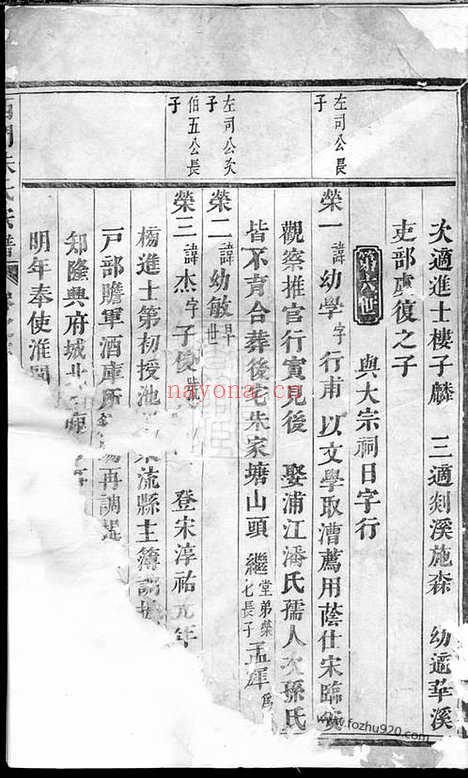 左司公長
子
左司公次
子
伯五公長
子
次適進士樓子麟 三適剡溪施森 幼適華溪
吏部虞復之子
第六世 與大宗祠日字行
榮一 諱幼學 字行甫 以文學取漕薦用蔭仕宋臨安
觀察推官行實見後 娶浦江潘氏孺人次孫氏
皆不育合葬後宅朱家塘山頭 繼堂弟榮七長子孟
榮二 諱幼敏 早世
榮三 諱杰 字子俊 登宋淳祐元年
榜進士第初授池 流縣主簿
戸部贍軍酒庫所 再調
知隆興府城北
明年奉使淮
氏宗譜
nayona.cn
www.fozhu920.com